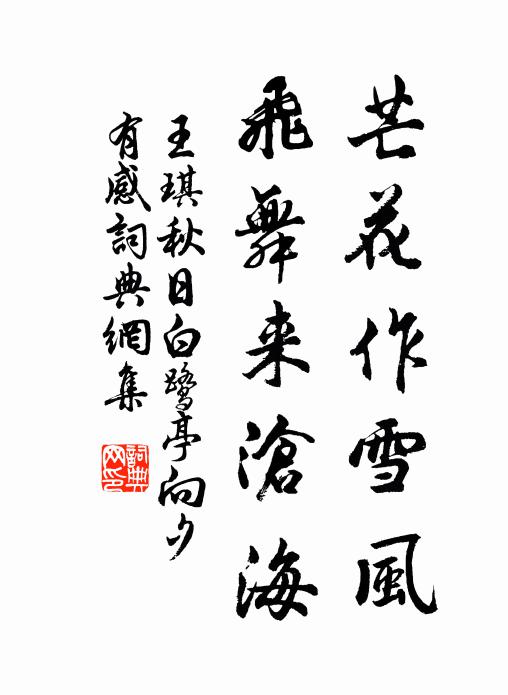 芒花作雪風
飛舞来滄海
王琪秋日白鷺亭向夕
有感詞典網集
詞典
网印